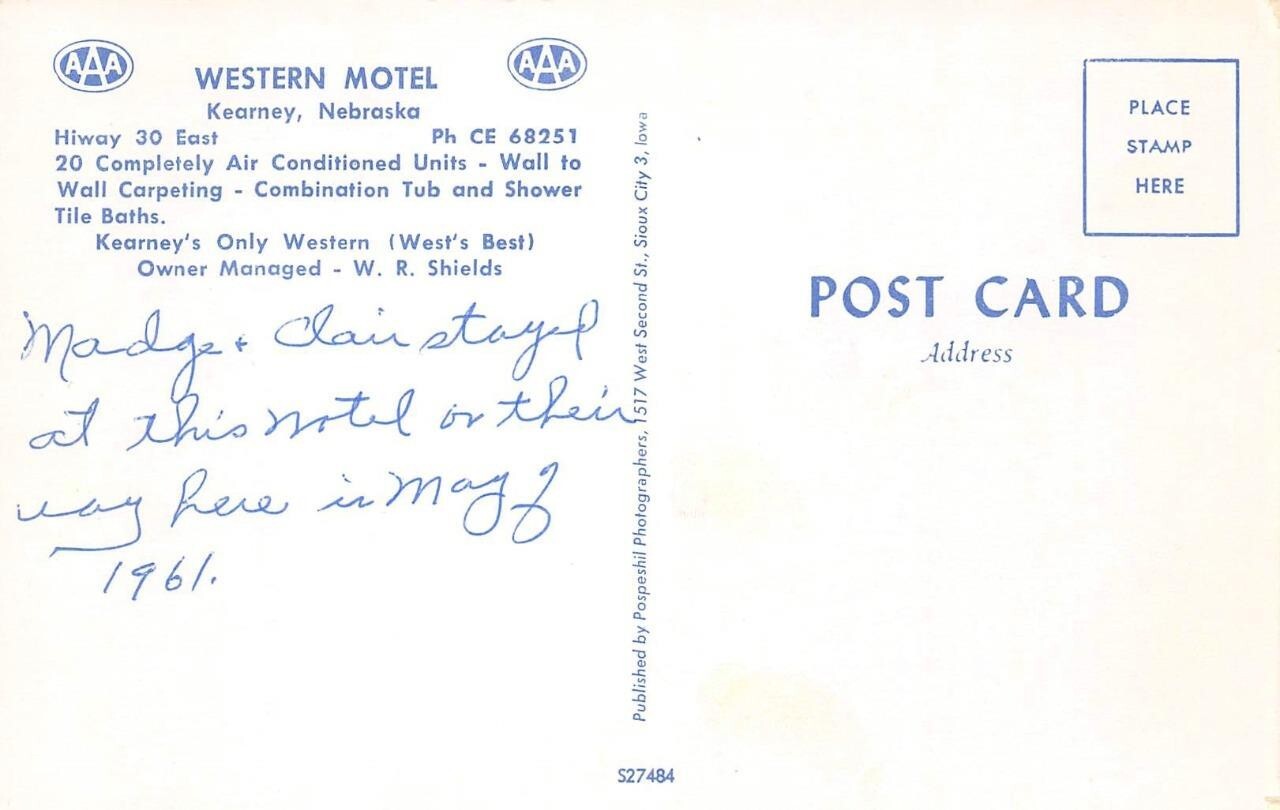 AAA AAA
WESTERN MOTEL
Kearney, Nebraska
Hiway 30 East Ph CE 68251
20 Completely Air Conditioned Units - Wall to
Wall Carpeting - Combination Tub and Shower
Tile Baths.
Kearney's Only Western (West's Best)
Owner Managed - W. R. Shields
Madge + Clair stayed
at this motel on their
way here in May of
1961.
Published by Pospeshil Photographers, 1517 West Second St., Sioux City 3, Iowa
S27484
PLACE
STAMP
HERE
POST CARD
Address